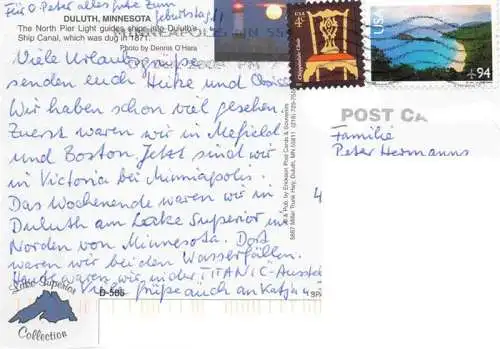 Für O. Peter alles gute zum
Geburtstag!
DULUTH, MINNESOTA
The North Pier Light guides ships into Duluth's
Ship Canal, which was dug in 1871.
Photo by Dennis O'Hara
USA
Chippendale Chair
USA
94
POST CA
Familie
Peter Hermanns
Viele Urlaubsgrüße
senden euch Heike und
Wir haben schon viel gesehen.
Zuerst waren wir in Mefield
und Boston. Jetzt sind wir
in Victoria bei Minniapolis.
Das Wochenende waren wir in
Duluth am Lake Superior im
Norden von Minnesota. Dort
waren wir bei den Wasserfällen.
Heute waren wir in der TITANIC-Ausstel
Viele Grüße auch an Katja u
& Pub by Erickson Post Cards & Souvenirs
5687 Miller Trunk Hwy, Duluth, MN 55811
D-586
Lake Superior
Collection